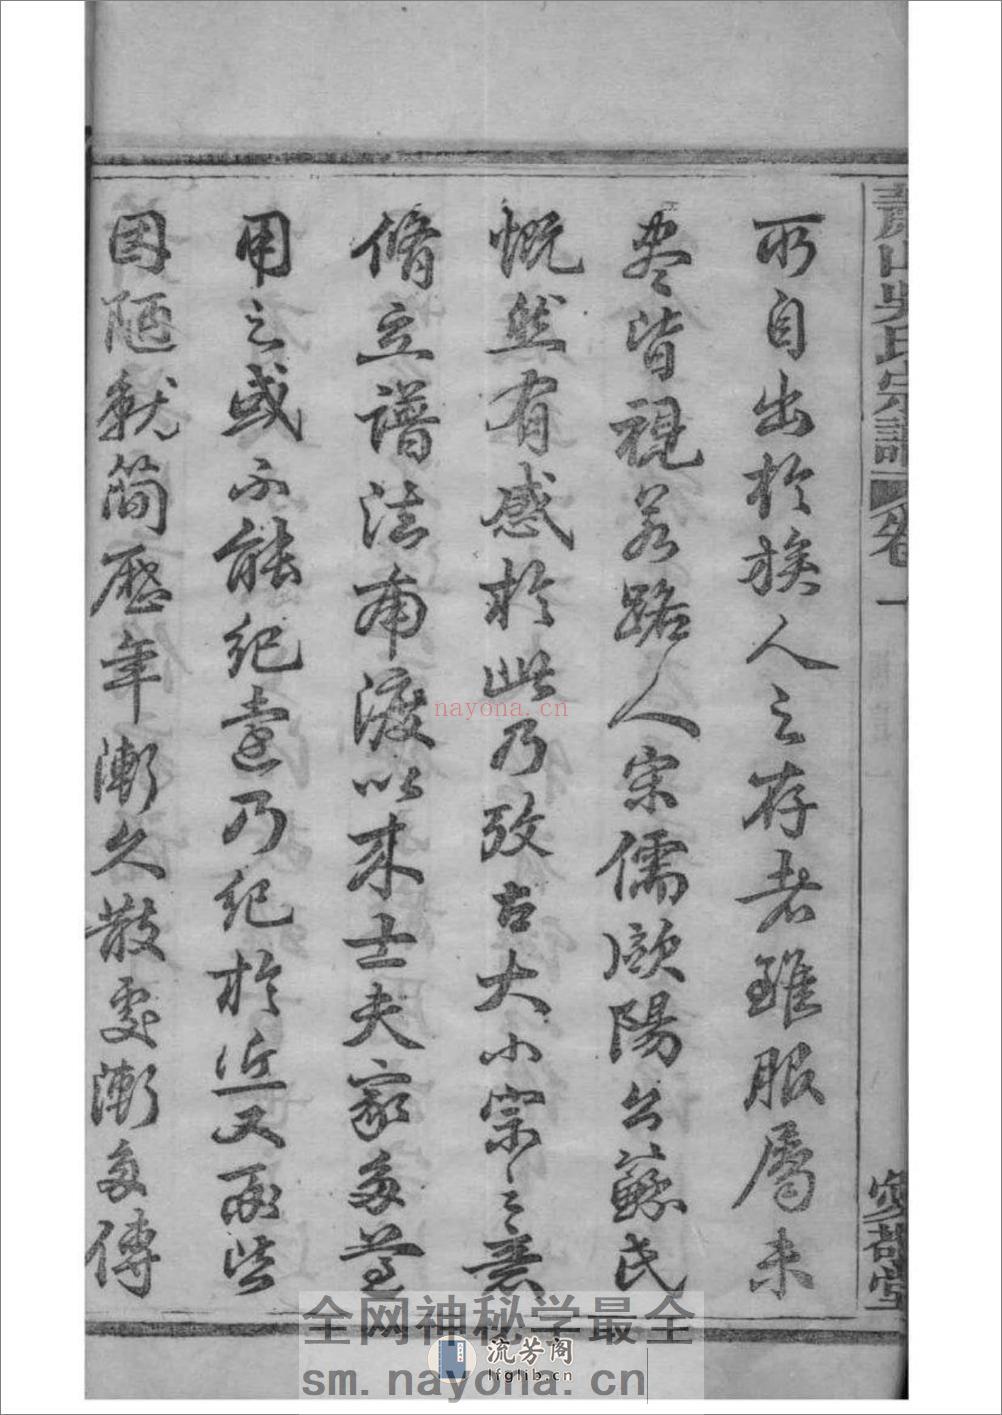 蕭山吳氏宗譜 卷一 堂
所自出於族人之存者雖服屬未
尽皆視若路人宋儒歐陽公蘇氏
慨然有感於此乃攷古大小宗之意
脩立譜法南渡以来士夫家多遵
用之或不能紀遠乃紀於近又
因陋就簡歷年漸久散處漸多傳
nayona.cn
全网神秘学最全
流芳阁
lfglib.cn
sm.nayona.cn